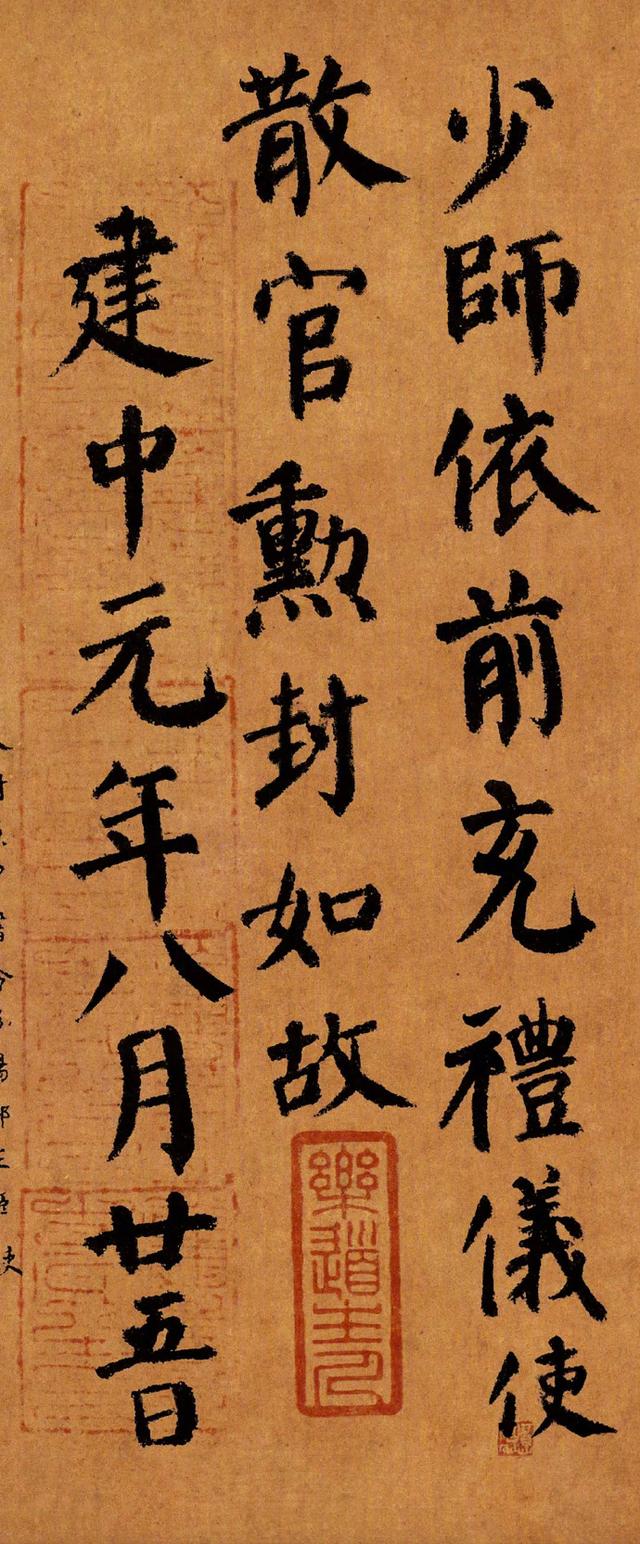 少師依前充禮儀使
散官勲封如故
建中元年八月廿五日
樂道主人